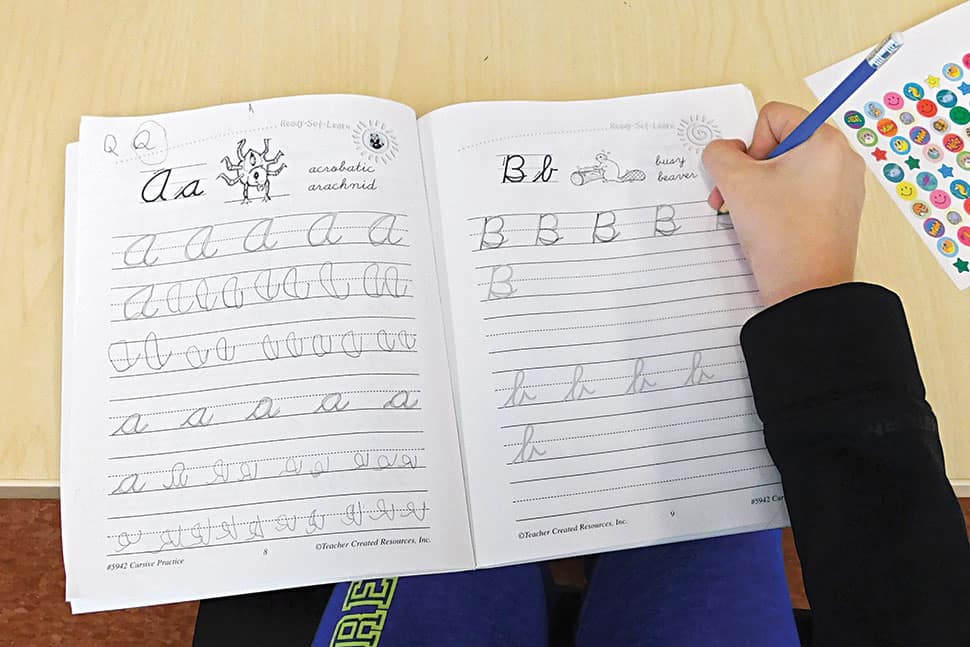 Q Q
Ready-Set-Learn
Aa
acrobatic
arachnid
a a a a a
a a a a a a a a a
a a a a a a a a a a
a a a a a
a a a a a a a a
a a a a a a a a a
#5942 Cursive Practice
8
©Teacher Created Resources, Inc.
Ready-Set-Learn
Bb
busy
beaver
B B B B B
B
b b b b
b
©Teacher Created Resources, Inc.
9
#5942 Cur
RE